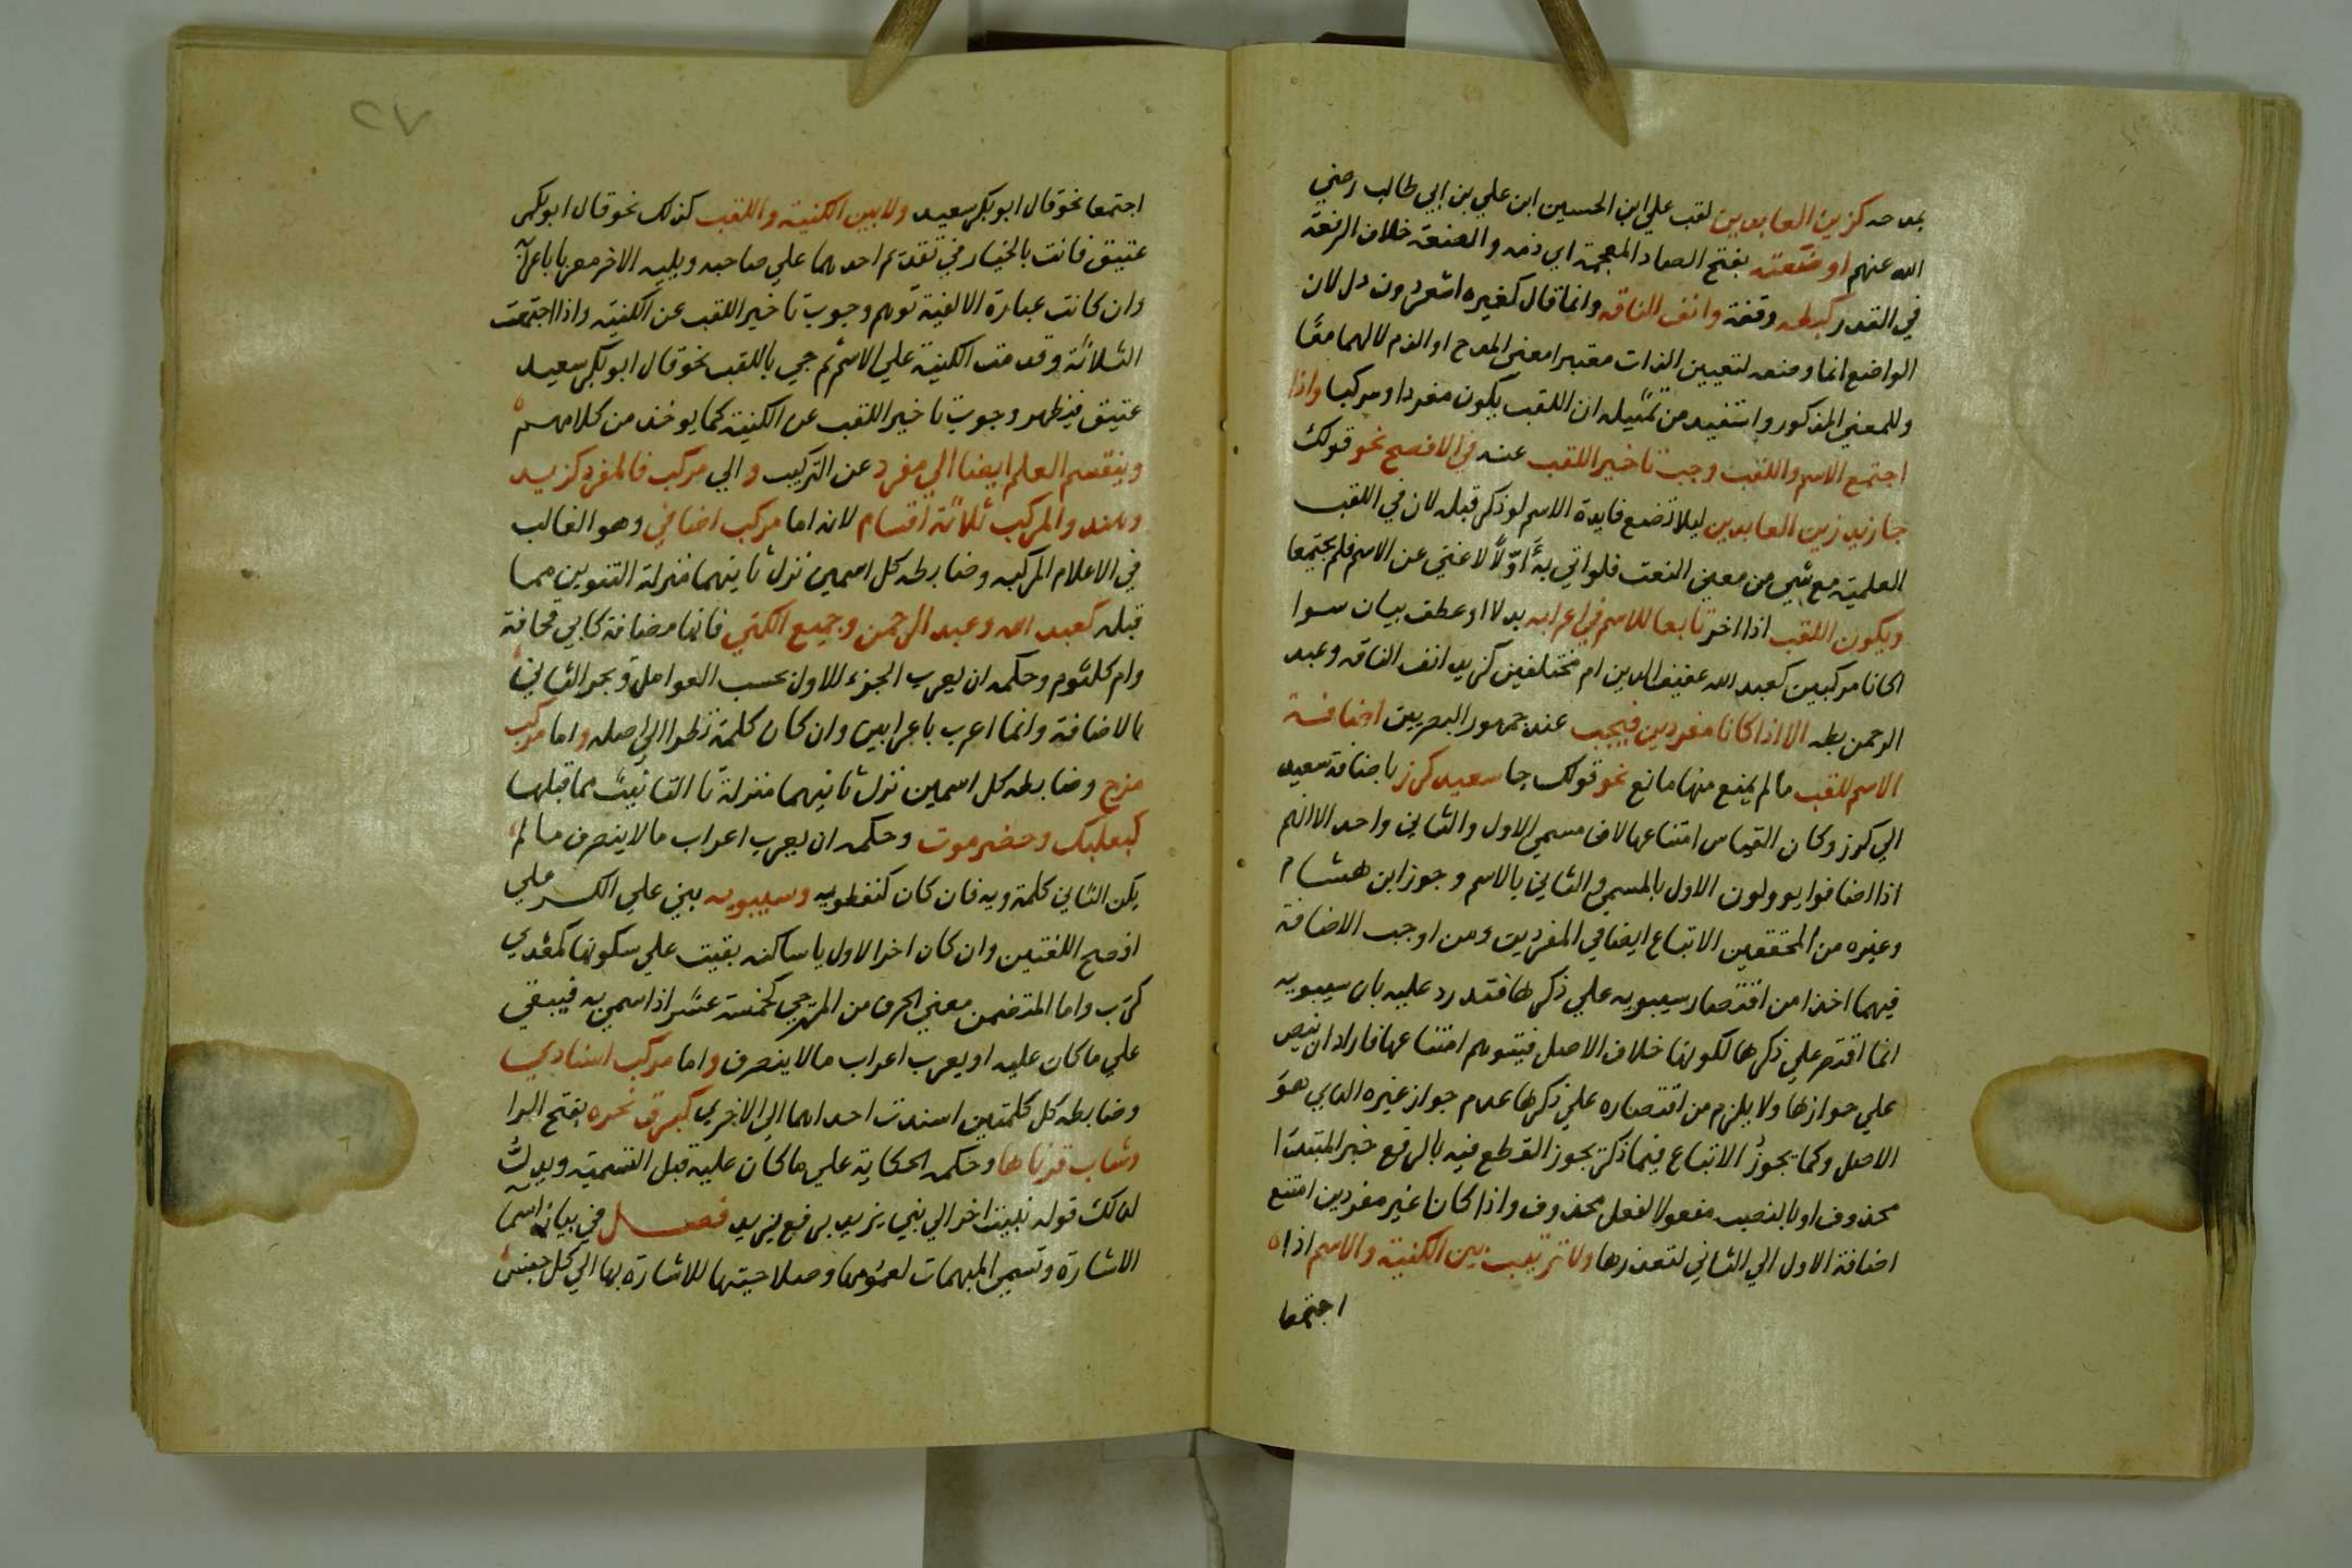 بمدحه كزين العابدين لقب علي ابن الحسين ابن علي بن ابي طالب رضي
الله عنهم او ضعته بفتح الضاد المعجمة اي ذمه والضعة خلاف الرفعة
في القدر كبطه وقفة وانف الناقه وانما قال كغيره اشعر دون دل لان
الواضع انما وضعه لتعيين الذات معتبرا معني المدح او الذم لا لهما معًا
وللمعني المذكور واستفيد من تمثيله ان اللقب يكون مفردا ومركبا واذا
اجتمع الاسم واللقب وجب تاخير اللقب عنه في الافصح نحو قولك
جا زيد زين العابدين ليلا تضع فايدة الاسم لو ذكر قبله لان في اللقب
العلمية مع شي من معني النعت فلو اتي به اوّلاً لاغني عن الاسم فلم يجتمعا
ويكون اللقب اذا اخر تابعا للاسم في اعرابه بدلا او عطف بيان سوا
اكانا مركبين كعبد الله عفيف الدين ام مختلفين كزيد انف الناقه وعبد
الرحمن بطه الا اذا كانا مفردين فيجب عند جمهور البصريين اضافة
الاسم للقب مالم يمنع منها مانع نحو قولك جا سعيد كرز باضافة سعيد
الي كرز وكان القياس امتناعها لان مسمي الاول والثاني واحد الا انهم
اذا اضافوا يوولون الاول بالمسمي والثاني بالاسم وجوز ابن هشام
وغيره من المحققين الاتباع ايضا في المفردين ومن اوجب الاضافة
فيهما اخذا من اقتصار سيبويه علي ذكرها فقد رد عليه بان سيبويه
انما اقتصر علي ذكرها لكونها خلاف الاصل فيتوهم امتناعها فاراد ان ينص
علي جوازها ولا يلزم من اقتصاره علي ذكرها عدم جواز غيره الذي هو
الاصل وكما يجوز الاتباع فيما ذكر يجوز القطع فيه بالرفع خبر المبتدا
محذوف او بالنصب مفعولا لفعل محذوف واذا كانا غير مفردين امتنع
اضافة الاول الي الثاني لتعذرها ولا ترتيب بين الكنية والاسم اذا
اجتمعا
٢٧
اجتمعا نحو قال ابو بكر سعيد ولا بين الكنية واللقب كذلك نحو قال ابو بكر
عتيق فانت بالخيار في تقديم احدهما علي صاحبه ويليه الاخر معربا باعرابه
وان كانت عبارة الالفية توهم وجوب تاخير اللقب عن الكنية واذا اجتمعت
الثلاثة وقدمت الكنية علي الاسم ثم جي باللقب نحو قال ابو بكر سعيد
عتيق فيظهر وجوب تاخير اللقب عن الكنية كما يوخذ من كلامهم
وينقسم العلم ايضا الي مفرد عن التركيب والي مركب فالمفرد كزيد
وهند والمركب ثلاثة اقسام لانه اما مركب اضافي وهو الغالب
في الاعلام المركبه وضابطه كل اسمين نزل ثانيهما منزلة التنوين مما
قبله كعبد الله وعبد الرحمن وجميع الكني فانها مضافة كابي قحافة
وام كلثوم وحكمه ان يعرب الجزء الاول بحسب العوامل ويجر الثاني
بالاضافة وانما اعرب باعرابين وان كان كلمة نظرا الي اصله واما مركب
مزج وضابطه كل اسمين نزل ثانيهما منزلة تا التانيث مما قبلها
كبعلبك وحضرموت وحكمه ان يعرب اعراب مالا ينصرف مالم
يكن الثاني كلمة ويه فان كان كنفطويه وسيبويه بني علي الكسر علي
افصح اللغتين وان كان اخر الاول يا ساكنه بقيت علي سكونها كمعدي
كرب واما المتضمن معني الحرف من المزجي كخمسة عشر اذا سمي به فيبقي
علي ما كان عليه او يعرب اعراب مالا ينصرف واما مركب اسنادي
وضابطه كل كلمتين اسندت احداهما الي الاخري كبرق نحره بفتح الرا
وشاب قرناها وحكمه الحكاية علي ما كان عليه قبل التسمية ويدل
لذلك قوله نبئت اخوالي بني يزيد برفع يزيد فصل في بيان اسما
الاشارة وتسمي المبهمات لعمومها وصلاحيتها للاشارة بها الي كل جنس